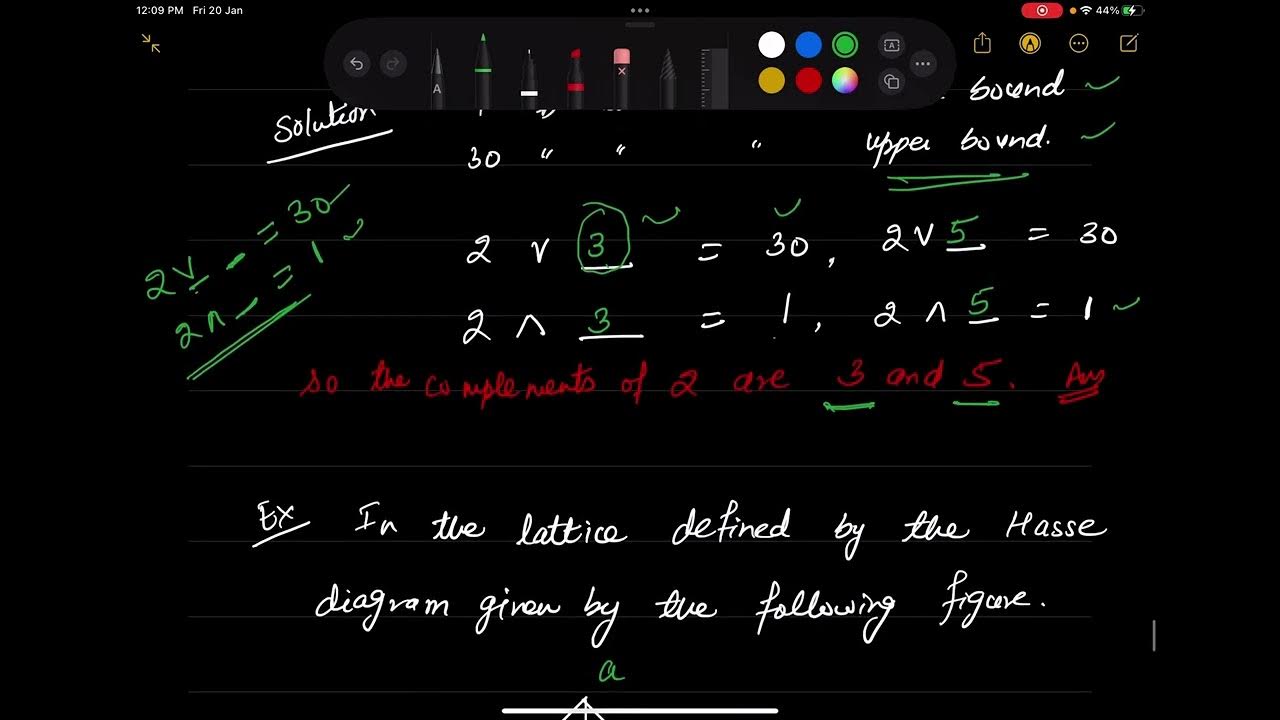 12:09 PM Fri 20 Jan
44%
A
A
bound
Solution
30 " " " upper bound.
2 ∨ _ = 30
2 ∧ _ = 1
2 ∨ 3 = 30, 2 ∨ 5 = 30
2 ∧ 3 = 1, 2 ∧ 5 = 1
so the complements of 2 are 3 and 5. Ans
Ex In the lattice defined by the Hasse
diagram given by the following figure.
a